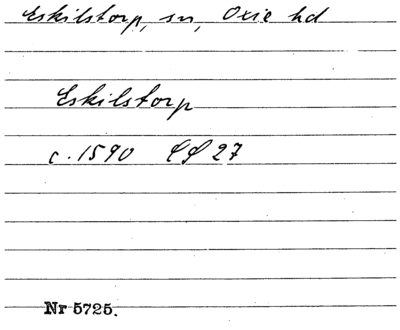 Eskilstorp, sn, Oxie hd
Eskilstorp
c. 1590 LL 27
Nr 5725.